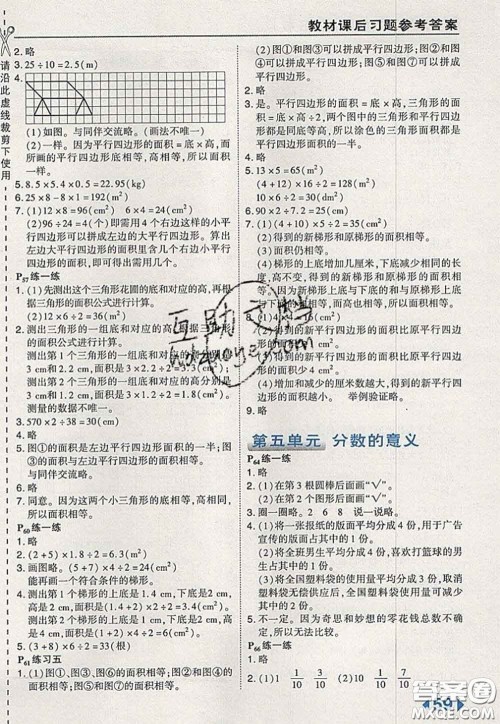 教材课后习题参考答案
请沿此虚线裁剪下使用
2. 略
3. 25÷10=2.5(m)
4.
(1)如图。与同伴交流略。(画法不唯一)
(2)一样。因为平行四边形的面积=底×高,而
所画的平行四边形底相等,高相等,所以面
积相等。
5. 8.5×5.4×0.5=22.95(kg)
6. 25×8-8×1=192(m²)
7. (1)12×8=96(cm²) 6×4=24(cm²)
(2)96÷24=4(个) 即需用4个右边这样的小平
行四边形可以拼成左边的大平行四边形。算出
左边大平行四边形的面积里含有几个右边小平
行四边形的面积,即可得出需要几个。
P57练一练
1. (1)先测出这个三角形花圃的底和对应的高,再根
据三角形的面积公式进行计算。
(2)12×6÷2=36(m²)
2. 测出三角形的一组底和对应的高,根据三角形的
面积公式进行计算。
测出第1个三角形的一组底和对应的高分别是
3cm和2.2cm,面积是3×2.2÷2=3.3(cm²)
测出第2个三角形的一组底和对应的高分别是
3cm和1.8cm,面积是3×1.8÷2=2.7(cm²)
测量的数据不唯一。
3. 570×2÷38=30(cm)
4. 略
5. 图①的面积是左边平行四边形面积的一半,图③的
面积是右边平行四边形面积的一半。
6. 略
7. 同意。因为这两个小三角形的底相等,高相等,根据
三角形的面积公式可知面积相等。
P60练一练
1. 略
2. (2+5)×1.8÷2=6.3(m²)
能再画一个符合条件的梯形。
3. 测出第1个梯形的上底是1.4cm,下底是2cm,高是
2cm,面积是(1.4+2)×2÷2=3.4(cm²)
测出第2个梯形的上底是1.2cm,下底是2.2cm,高
是2cm,面积是(1.2+2.2)×2÷2=3.4(cm²)
P61练习五
1. (1)图①、图③、图⑥的面积相等;图②、图④、图⑤
的面积相等。
(2)图①和图③可以拼成平行四边形;图①和图⑥
可以拼成平行四边形;图③和图⑥可以拼成平
行四边形;图②和图⑤可以拼成平行四边形。
2. 略
3. 是。平行四边形的面积=底×高,三角形的面
积=底×高÷2,两个图中的三角形与平行四边形
等底等高,所以涂色的三角形面积都是平行四边形
面积的一半。
4. 略
5. (12+18)×10÷2=150(cm²)
(4+12)×16÷2=128(m²)
10×6÷2=30(dm²)
6. 略
7. (1)略
(2)得到的新梯形和原梯形的面积相等。
(3)面积仍相等。
(4)梯形的上底增加几厘米,下底就减少相同的长
度,高不变,得到的新梯形和原梯形的面积相等。
因为梯形的上底、下底的和不变,高不变,根据梯形
的面积公式可知面积不变。
8. (1)略
(2)得到的新平行四边形的面积比原平行四边形的
面积多6cm²。
(3)得到的新平行四边形的面积比原平行四边形的
面积少4cm²。
(4)增加和减少的厘米数越大,得到的新平行四边形
的面积越小。 举例验证略。
9. 略
第五单元 分数的意义
P64练一练
1. (1)在第3根圆棒后面画“√”。
(2)在第2个图形后面画“√”。
3. 圈一圈略。 2 6 8 说一说略。
4. (1)将一张报纸的版面平均分成4份,用于广告宣
传的版面占其中的1份。
(2)将全班男生平均分成3份,喜欢打篮球的男
生占其中的2份。
(3)全国塑料袋使用量平均分成3份,取消塑料
袋无偿供应后,全国塑料袋的使用量减少了
其中的2份。
5. 不一定。因为奇思和妙想的零花钱总数不确定。
P66练一练
2. (1)1 1/10 3/10 (2)10 1/10 7/10
59